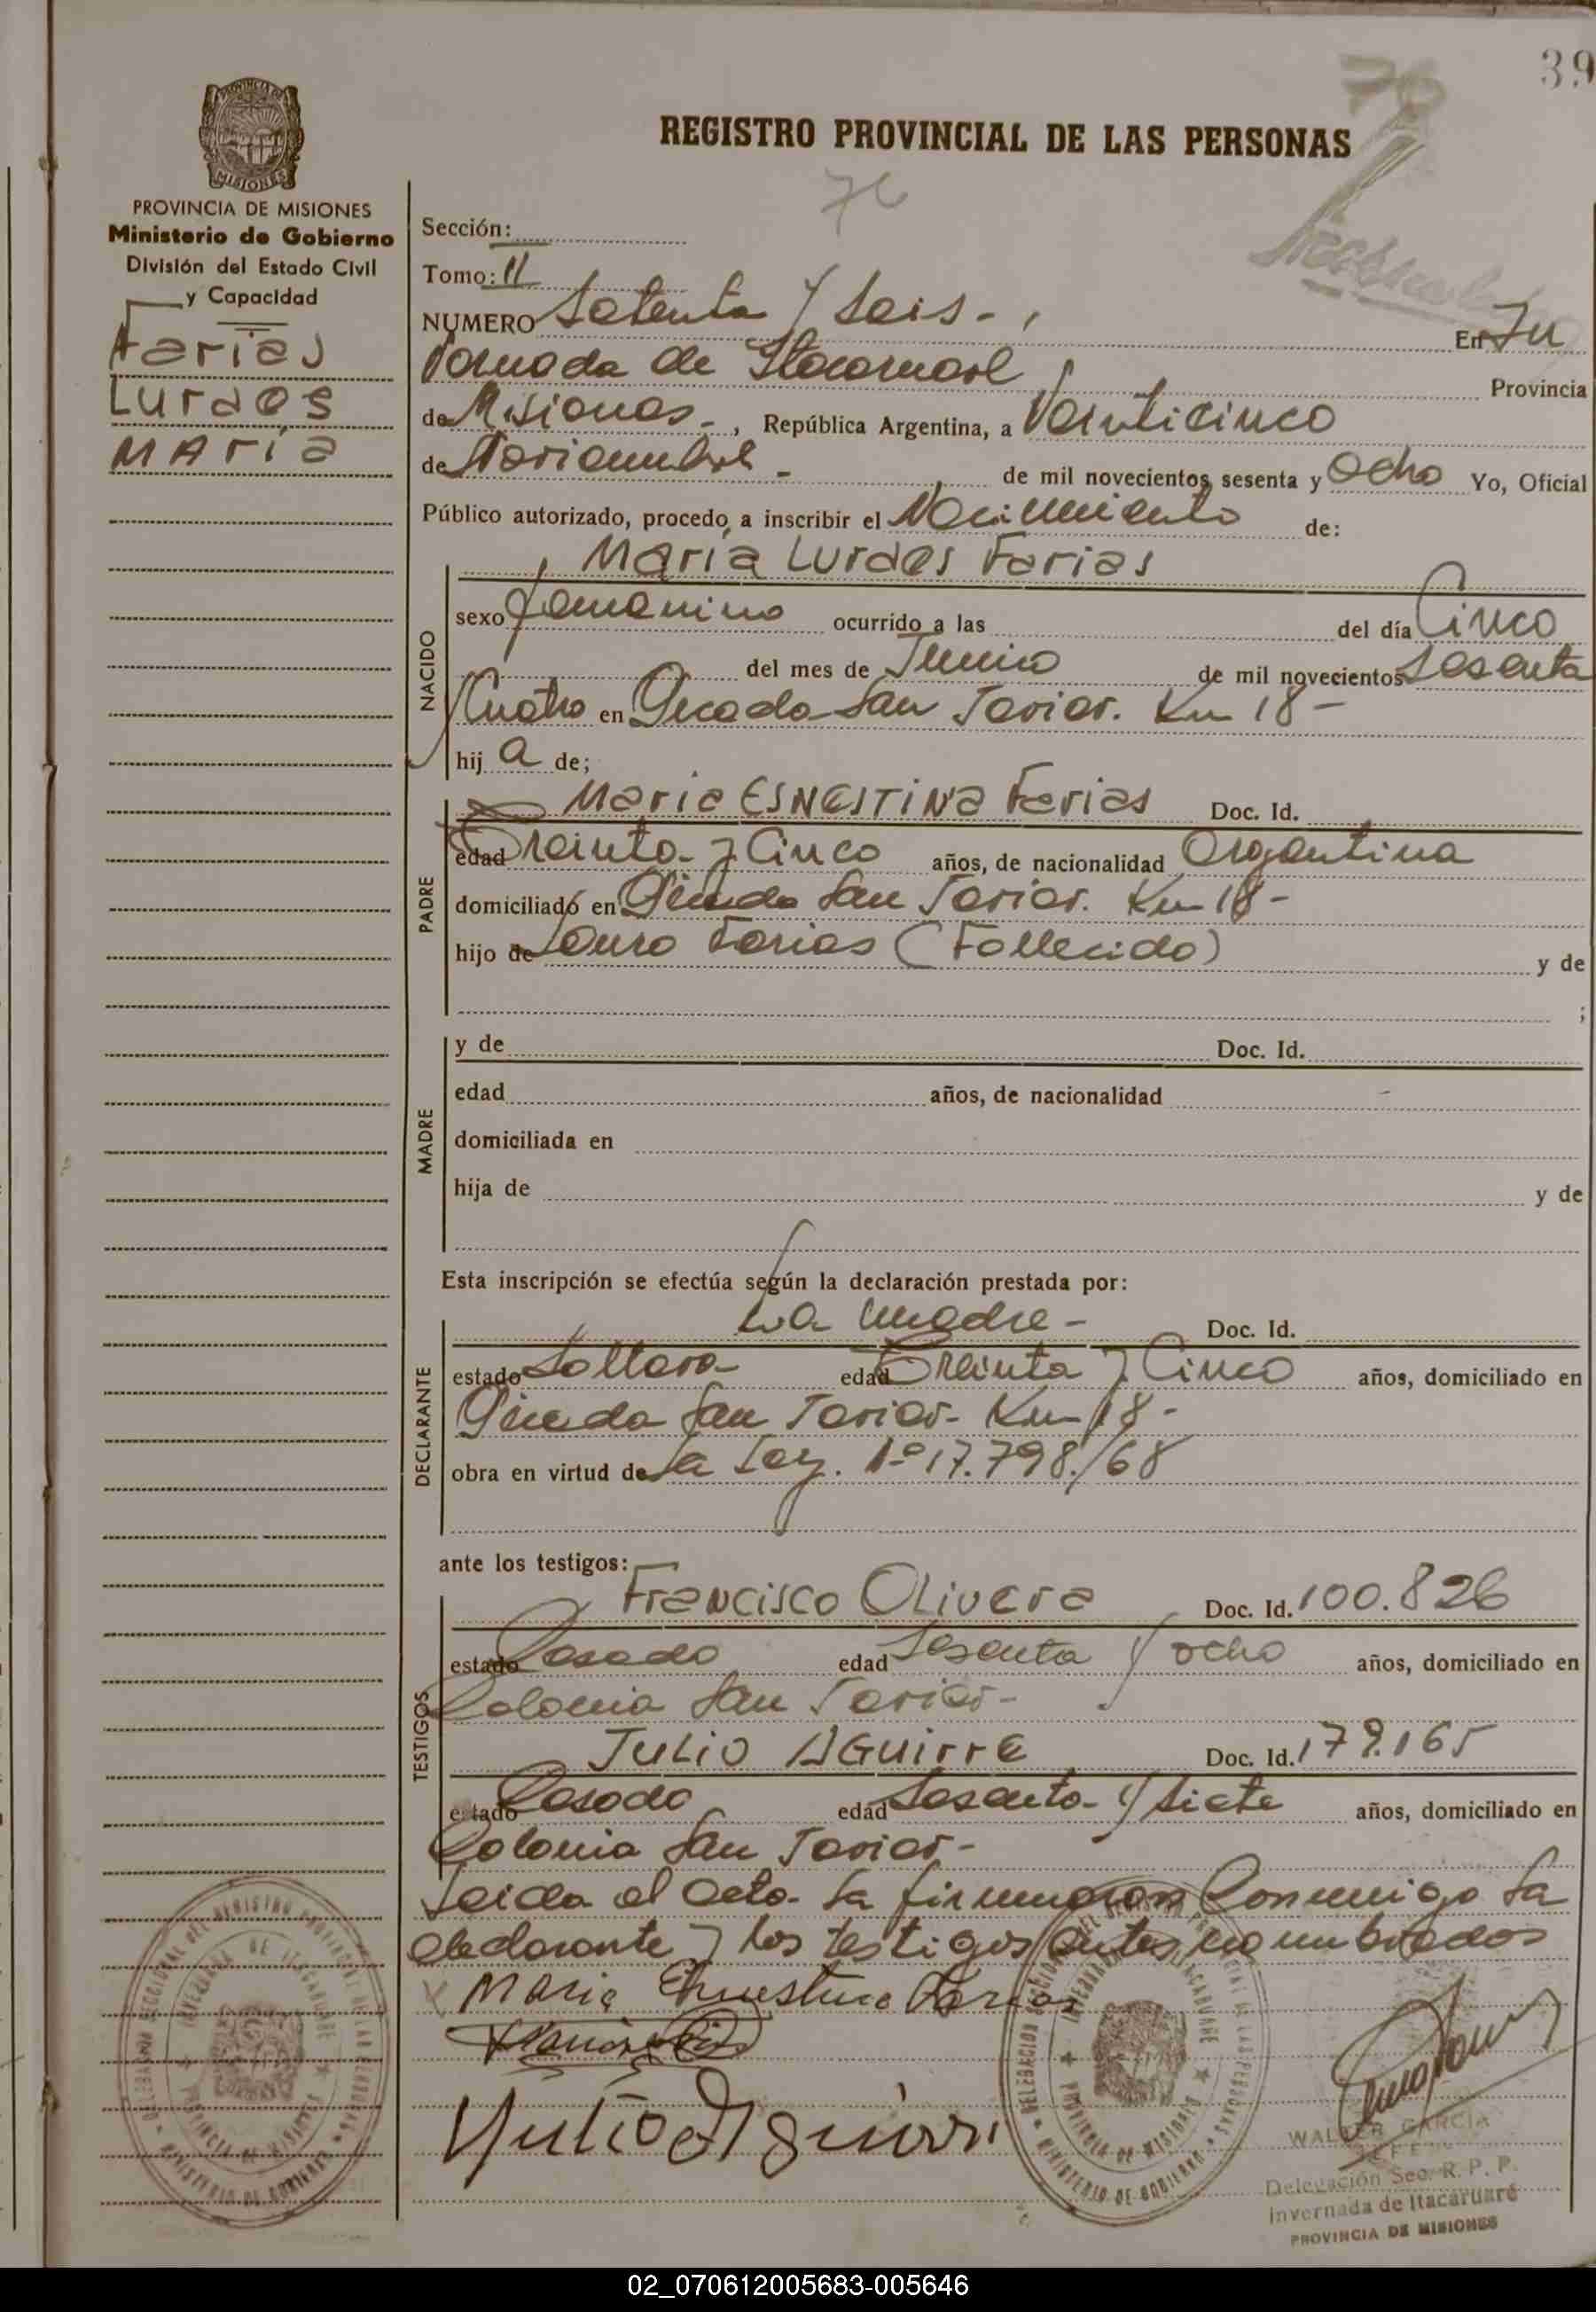 39
76
REGISTRO PROVINCIAL DE LAS PERSONAS
76
PROVINCIA DE MISIONES
Ministerio de Gobierno
División del Estado Civil
y Capacidad
Farias
Lurdes
María
Sección:
Tomo: II
NUMERO Setenta y Seis - En In
vernada de Itacaruaré Provincia
de Misiones -, República Argentina, a Veinticinco
de Noviembre - de mil novecientos sesenta y Ocho Yo, Oficial
Público autorizado, procedo a inscribir el Nacimiento de:
María Lurdes Farias
NACIDO
sexo femenino ocurrido a las del día Cinco
del mes de Junio de mil novecientos Sesenta
y Cuatro en Picada San Javier. Km 18 -
hij a de;
PADRE
Maria ESNESTINA Farias Doc. Id.
edad Treinta y Cinco años, de nacionalidad Argentina
domiciliado en Picada San Javier. Km 18 -
hijo de Lauro Farias (Fallecido) y de
;
MADRE
y de Doc. Id.
edad años, de nacionalidad
domiciliada en
hija de y de
Esta inscripción se efectúa según la declaración prestada por:
La Madre - Doc. Id.
DECLARANTE
estado Soltera edad Treinta y Cinco años, domiciliado en
Picada San Javier - Km 18 -
obra en virtud de La Ley. Nº 17.798/68
ante los testigos:
TESTIGOS
Francisco Olivera Doc. Id. 100.826
estado Casado edad Sesenta y ocho años, domiciliado en
Colonia San Javier -
Julio Aguirre Doc. Id. 179.165
estado Casado edad Sesenta y Siete años, domiciliado en
Colonia San Javier -
Leida el Acta - La firmaron Conmigo La
declarante y los testigos antes nombrados
Maria Ernestina Farias
Yulio Aguirri
WALTER GARCIA
JEFE
Delegación Sec. R. P. P.
Invernada de Itacaruaré
PROVINCIA DE MISIONES
02_070612005683-005646